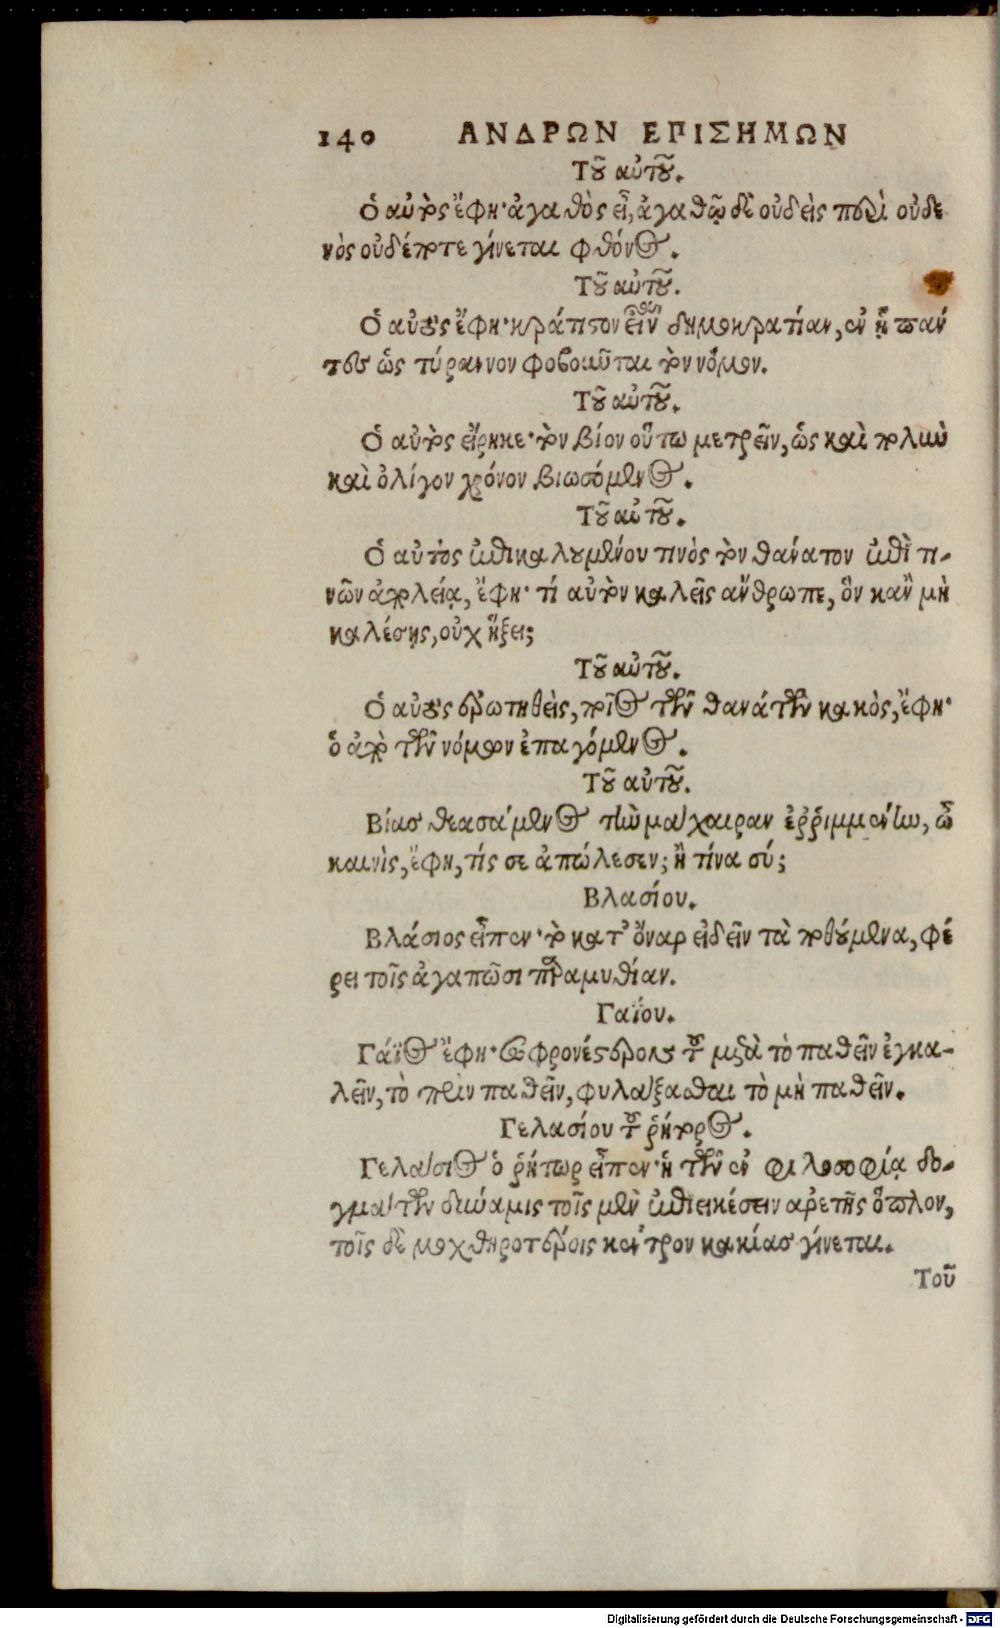 140 ΑΝΔΡΩΝ ΕΠΙΣΗΜΩΝ
Τοῦ αὐτοῦ.
Ὁ αὐτὸς ἔφη· ἀγαθὸς εἶ, ἀγαθῷ δὲ οὐδεὶς περὶ οὐδε
νὸς οὐδέποτε γίνεται φθόνος.
Τοῦ αὐτοῦ.
Ὁ αὐτὸς ἔφη· κράτιστον εἶναι δημοκρατίαν, ἐν ᾗ πάν
τες ὡς τύραννον φοβοῦνται τὸν νόμον.
Τοῦ αὐτοῦ.
Ὁ αὐτὸς εἴρηκε· τὸν βίον οὕτω μετρεῖν, ὡς καὶ πολὺν
καὶ ὀλίγον χρόνον βιωσόμενος.
Τοῦ αὐτοῦ.
Ὁ αὐτὸς ἐπικαλουμένου τινὸς τὸν θάνατον ἐπὶ τι-
νῶν ἀτελείᾳ, ἔφη· τί αὐτὸν καλεῖς ἄνθρωπε, ὃν κἂν μὴ
καλέσῃς, οὐχ ἥξει;
Τοῦ αὐτοῦ.
Ὁ αὐτὸς ἐρωτηθεὶς, ποῖος τῶν θανάτων κακὸς, ἔφη·
ὁ ἀπὸ τῶν νόμων ἐπαγόμενος.
Τοῦ αὐτοῦ.
Βίας θεασάμενος τὴν μάχαιραν ἐῤῥιμμένην, ὦ
καινὶς, ἔφη, τίς σε ἀπώλεσεν; ἢ τίνα σύ;
Βλασίου.
Βλάσιος εἶπεν· τὸ κατ' ὄναρ εἰδεῖν τὰ ποθούμενα, φέ
ρει τοῖς ἀγαπῶσι παραμυθίαν.
Γαΐου.
Γάϊος ἔφη· σωφρονέστερον τοῦ μετὰ τὸ παθεῖν ἐγκα-
λεῖν, τὸ πρὶν παθεῖν, φυλάξασθαι τὸ μὴ παθεῖν.
Γελασίου τοῦ ῥήτορος.
Γελάσιος ὁ ῥήτωρ εἶπεν· ἡ τῶν ἐν φιλοσοφίᾳ δο-
γμάτων δύναμις τοῖς μὲν ἐπιεικέσιν ἀρετῆς ὅπλον,
τοῖς δὲ μοχθηροτέροις κέντρον κακίας γίνεται.
Τοῦ
Digitalisierung gefördert durch die Deutsche Forschungsgemeinschaft - DFG